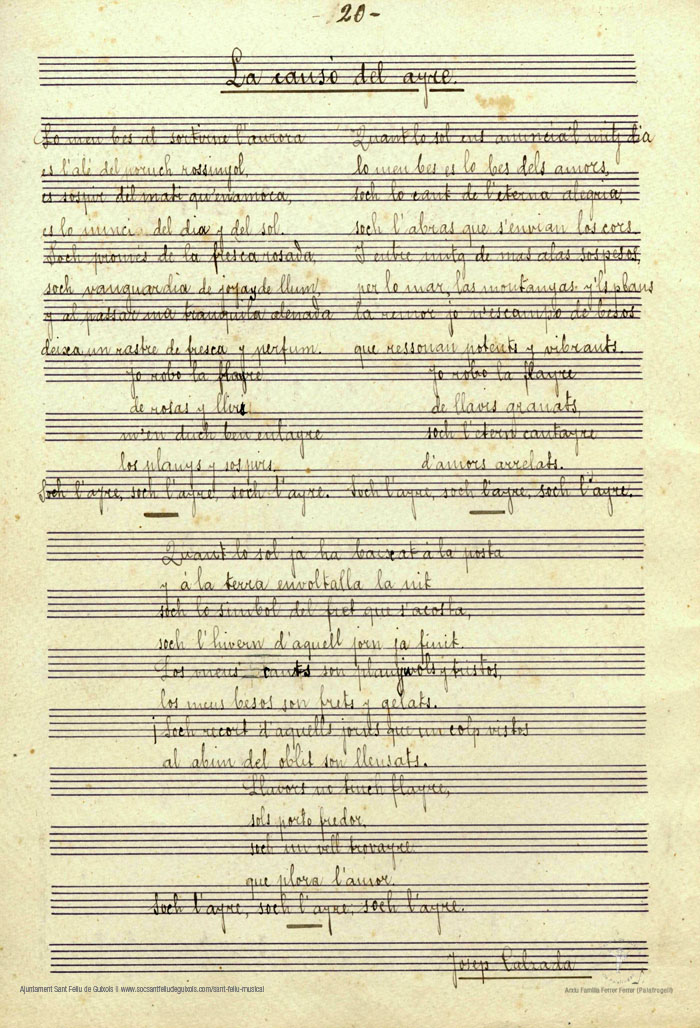 - 20 -
La cansó del ayre.
Lo meu bes al sortirne l'aurora
es l'alé del poruch rossinyol,
es sospir del matí qu'enamora,
es lo nunci del dia y del sol.
Soch promés de la fresca rosada,
soch vanguardia de joyas de llum,
y al passar ma tranquila alenada
deixa un rastre de fresca y perfum.
Jo robo la flayre
de rosas y lliris
m'en duch ben enlayre
los planys y sospirs.
Soch l'ayre, soch l'ayre, soch l'ayre.
Quant lo sol ens anuncia'l mitj dia
lo meu bes es lo bes dels amors,
soch lo cant de l'eterna alegria,
soch l'abras que s'envian los cors.
I entre mitg de mas alas sospesos,
per lo mar, las montanyas y'ls plans
la remor jo n'escampo de besos
que ressonan potents y vibrants.
Jo robo la flayre
de llavis granats,
soch l'etern cantayre
d'amors arrelats.
Soch l'ayre, soch l'ayre, soch l'ayre.
Quant lo sol ja ha baixat á la posta
y á la terra envoltalla la nit
soch lo simbol del fret que s'acosta,
soch l'hivern d'aquell jorn ja finit.
Los meus cants son planyivols y tristos,
los meus besos son frets y gelats.
¡Soch recort d'aquells jorns que un colp vistos
al abim del oblit son llensats.
Llavors no tinch flayre,
sols porto fredor,
soch un vell trovayre
que plora l'amor.
Soch l'ayre, soch l'ayre, soch l'ayre.
Josep Calzada
Ajuntament Sant Feliu de Guíxols © www.socsantfeliudeguixols.com/sant-feliu-musical
Arxiu Família Ferrer Ferrer (Palafrugell)